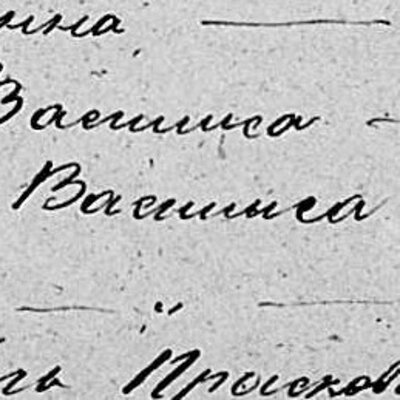 нна —
Василиса -
Василиса
— " —
Прысков